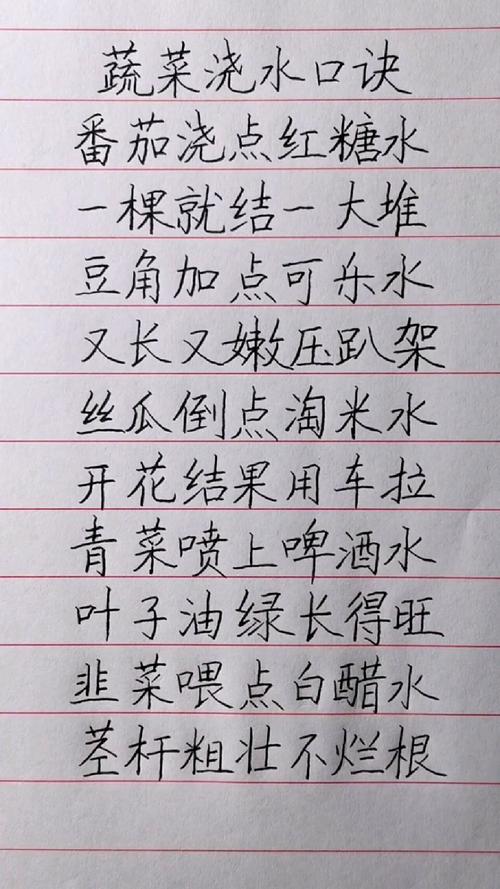 蔬菜浇水口诀
番茄浇点红糖水
一棵就结一大堆
豆角加点可乐水
又长又嫩压趴架
丝瓜倒点淘米水
开花结果用车拉
青菜喷上啤酒水
叶子油绿长得旺
韭菜喂点白醋水
茎杆粗壮不烂根